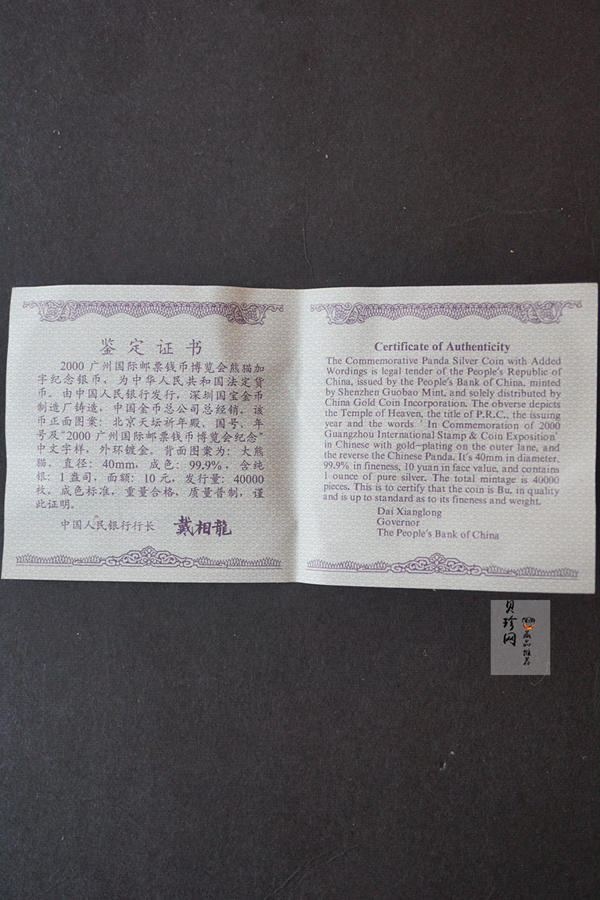 鉴定证书
2000 广州国际邮票钱币博览会熊猫加
字纪念银币，为中华人民共和国法定货
币。由中国人民银行发行，深圳国宝金币
制造厂铸造，中国金币总公司总经销，该
币正面图案：北京天坛祈年殿、国号、年
号及“2000 广州国际邮票钱币博览会纪念”
中文字样，外环镀金。背面图案为：大熊
猫。直径：40mm，成色：99.9%，含纯
银：1 盎司，面额：10 元，发行量：40000
枚。成色标准，重量合格，质量普制，谨
此证明。
中国人民银行行长 戴相龍
Certificate of Authenticity
The Commemorative Panda Silver Coin with Added
Wordings is legal tender of the People's Republic of
China, issued by the People's Bank of China, minted
by Shenzhen Guobao Mint, and solely distributed by
China Gold Coin Incorporation. The obverse depicts
the Temple of Heaven, the title of P.R.C., the issuing
year and the words ' In Commemoration of 2000
Guangzhou International Stamp & Coin Exposition'
in Chinese with gold-plating on the outer lane, and
the reverse the Chinese Panda. It's 40mm in diameter,
99.9% in fineness, 10 yuan in face value, and contains
1 ounce of pure silver. The total mintage is 40000
pieces. This is to certify that the coin is Bu. in quality
and is up to standard as to its fineness and weight.
Dai Xianglong
Governor
The People's Bank of China
贝珍网
藏品推荐